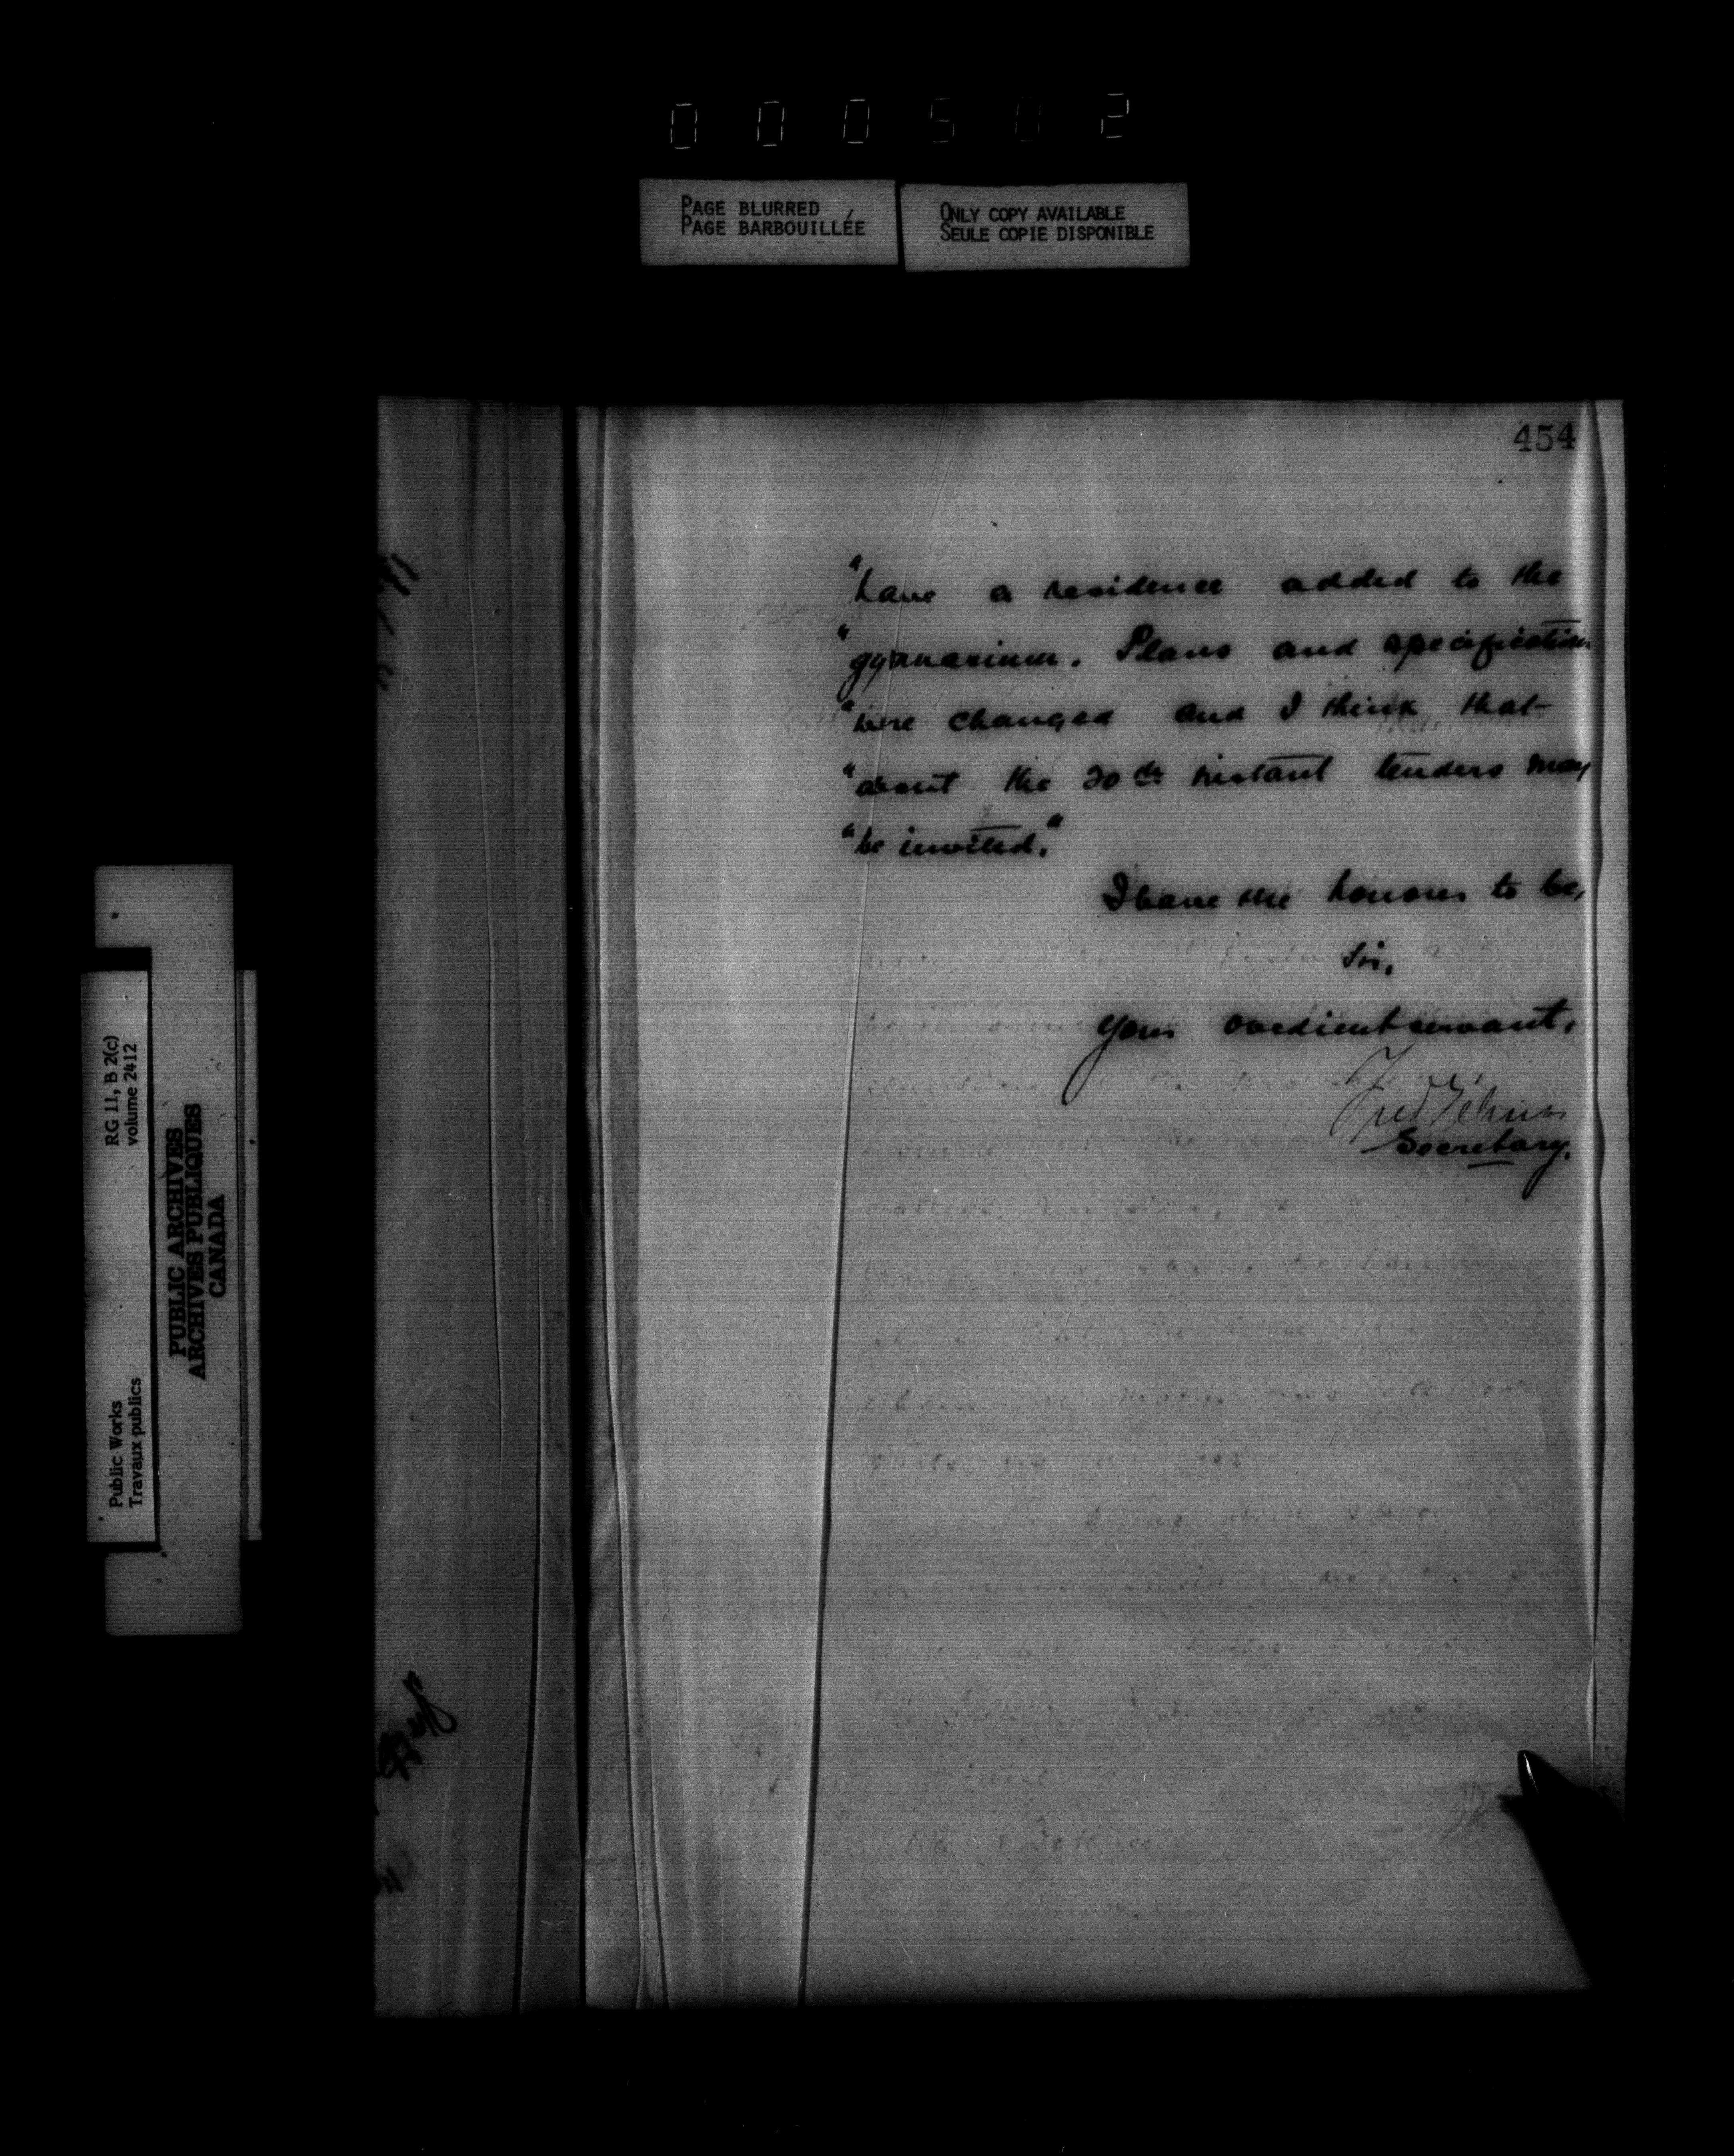 000502
PAGE BLURRED
PAGE BARBOUILLÉE
ONLY COPY AVAILABLE
SEULE COPIE DISPONIBLE
454
"have a residence added to the
"gymnasium. Plans and specifications
"were changed and I think that
"about the 20th instant tenders may
"be invited."
I have the honour to be,
Sir,
Your obedient servant,
Fred Gélinas
Secretary.
RG 11, B 2(c)
volume 2412
Public Works
Travaux publics
PUBLIC ARCHIVES
ARCHIVES PUBLIQUES
CANADA